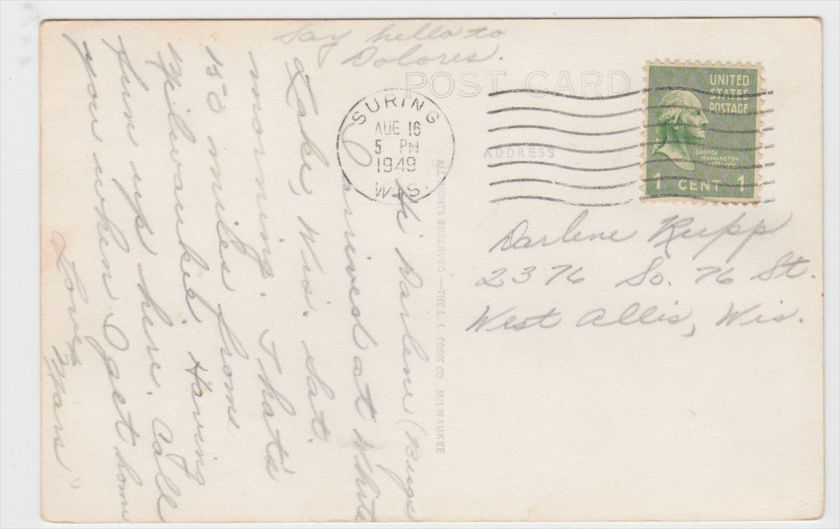 Say hello to
Dolores.
POST CARD
SURING
AUG 16
5 PM
1949
WIS.
UNITED
STATES
POSTAGE
GEORGE
WASHINGTON
1 CENT 1
ADDRESS
Darlene Rupp
2376 So. 76 St.
West Allis, Wis.
ALL RIGHTS RESERVED—THE L. L. COOK CO., MILWAUKEE
Hi Darlene (Bugs
I arrived at White
Lake, Wis. Sat.
morning. That's
150 miles from
Milwaukee. Having
fun up here. Call
you when I get home
Love,
"Mars"